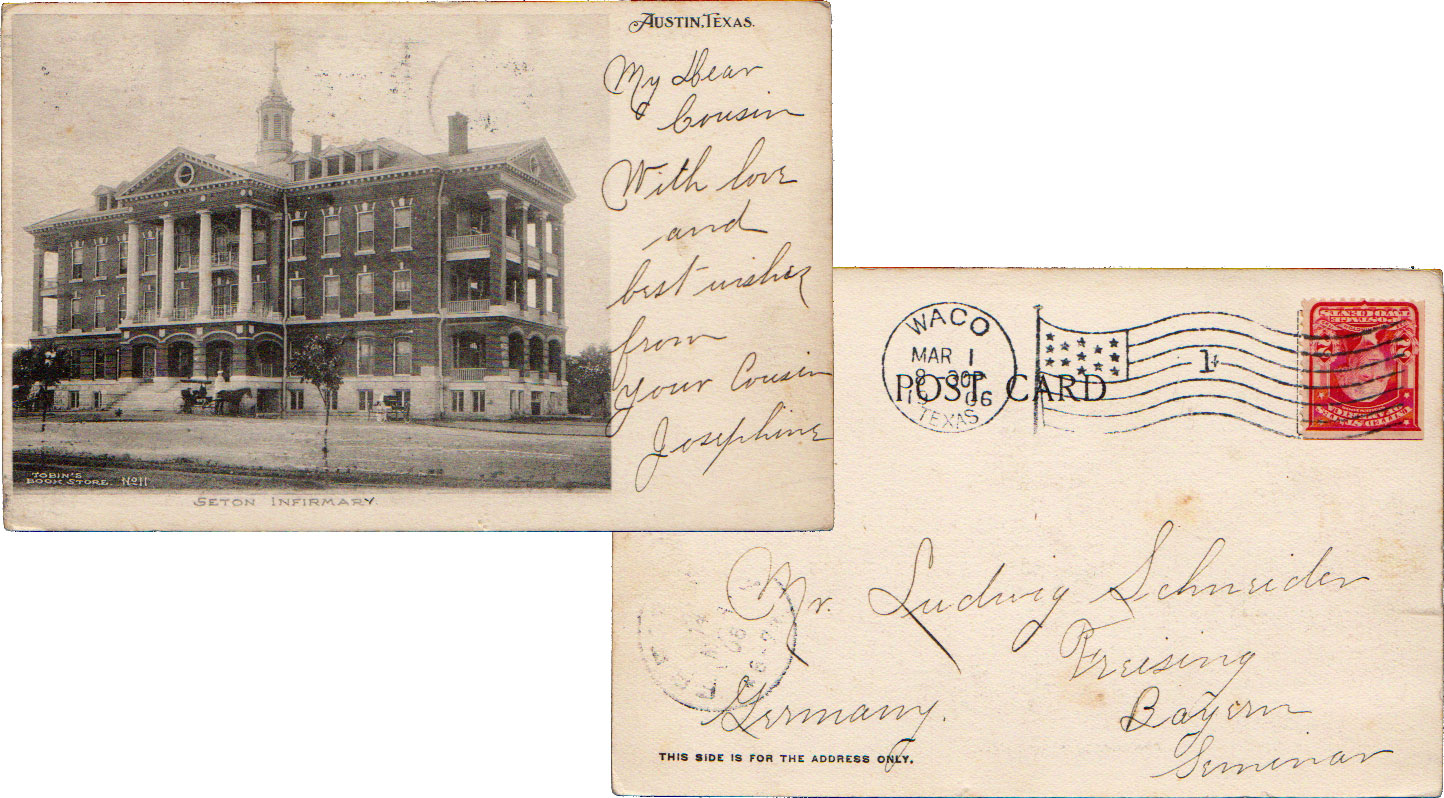 AUSTIN, TEXAS.
My Dear
Cousin
With love
and
best wishes
from
your Cousin
Josephine
TOBIN'S
BOOK STORE. No 11
SETON INFIRMARY.
WACO
MAR 1
8 30P
1906
TEXAS
1
POST CARD
2 2
Mr. Ludwig Schneider
Freising
Germany.
Bayern
Seminar
THIS SIDE IS FOR THE ADDRESS ONLY.